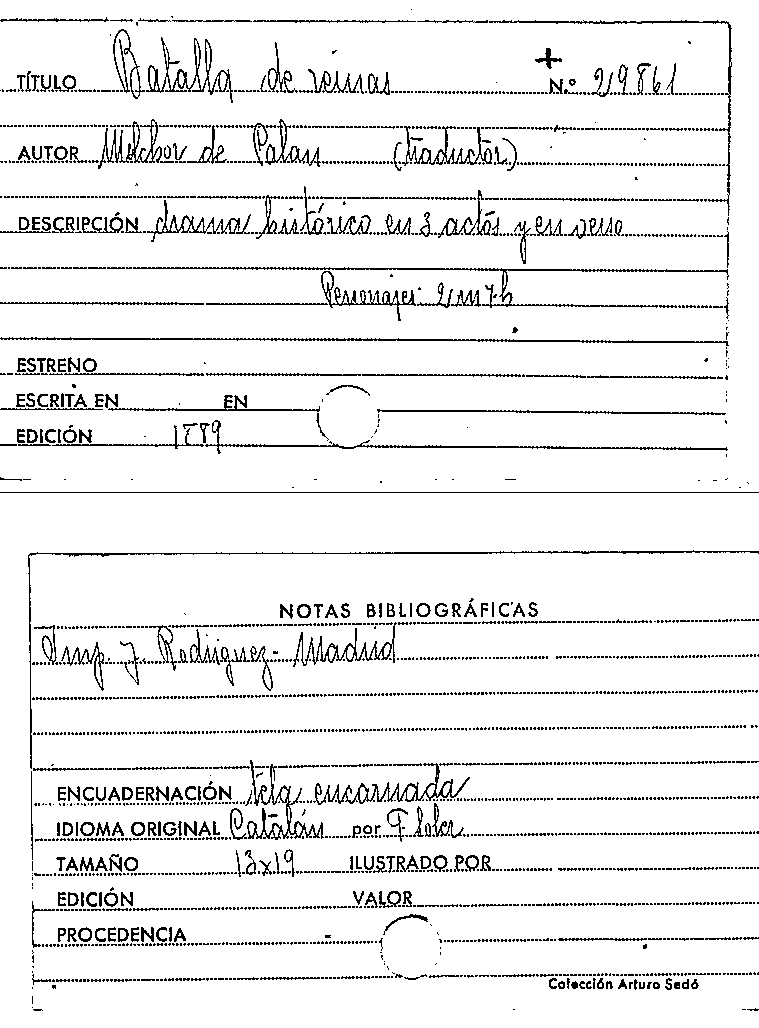 TÍTULO Batalla de reinas + N.º 29861
AUTOR Melchor de Palau (traductor)
DESCRIPCIÓN drama histórico en 3 actos y en verso
Personajes: 2 m 7 h
ESTRENO
ESCRITA EN EN
EDICIÓN 1889
NOTAS BIBLIOGRÁFICAS
Imp. J. Rodríguez - Madrid
ENCUADERNACIÓN tela encarnada
IDIOMA ORIGINAL Catalán por F. Soler
TAMAÑO 13x19 ILUSTRADO POR
EDICIÓN VALOR
PROCEDENCIA -
Colección Arturo Sedó